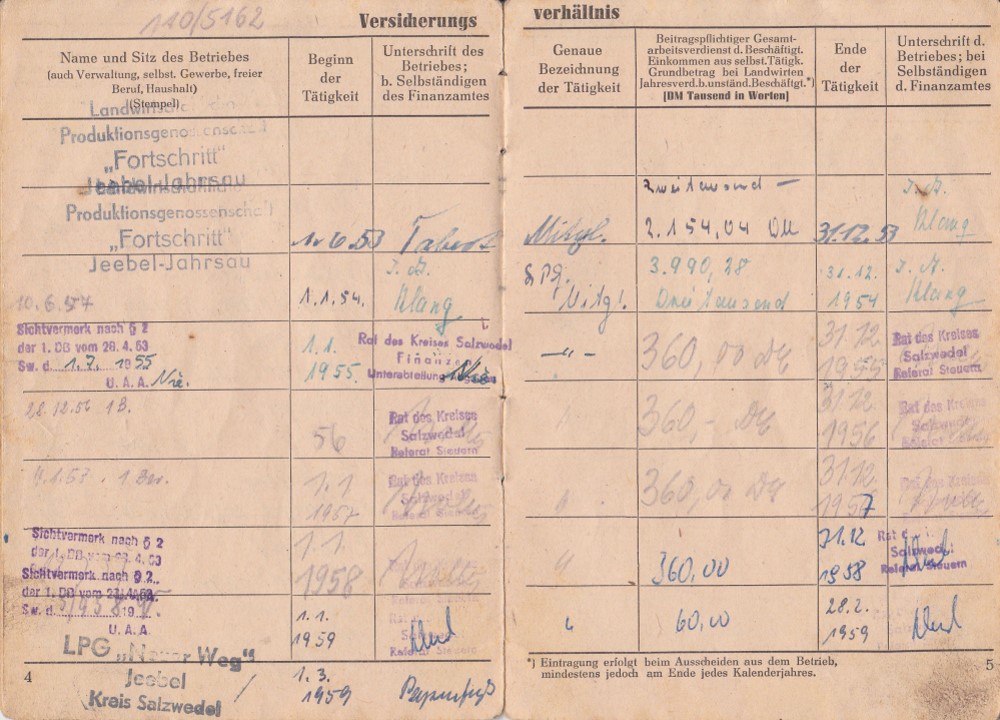 110/5162
Versicherungs
Name und Sitz des Betriebes
(auch Verwaltung, selbst. Gewerbe, freier
Beruf, Haushalt)
(Stempel)
Beginn
der
Tätigkeit
Unterschrift des
Betriebes;
b. Selbständigen
des Finanzamtes
Produktionsgenossenschaft
„Fortschritt"
Jeebel-Jahrsau
Produktionsgenossenschaft
„Fortschritt"
Jeebel-Jahrsau
1. 6. 53
10. 6. 57
1. 1. 54.
Klang
Sichtvermerk nach § 2
der 1. DB vom 28. 4. 53
Sw. d. 1. 7. 1955
U. A. A.
1. 1.
1955.
Rat des Kreises Salzwedel
Unterabteilung
56
Rat des Kreises
Salzwedel
Referat Steuern
1. 1
1957
Rat des Kreises
Salzwedel
Referat Steuern
Sichtvermerk nach § 2
Sichtvermerk nach § 2
U. A. A.
1. 1.
1958
1. 1.
1959
Salzwedel
Referat Steuern
LPG „Neuer Weg"
Jeebel
Kreis Salzwedel
1. 3.
1959
4
verhältnis
Genaue
Bezeichnung
der Tätigkeit
Beitragspflichtiger Gesamt-
arbeitsverdienst d. Beschäftigt.
Einkommen aus selbst. Tätigk.
Grundbetrag bei Landwirten
Jahresverd. b. unständ. Beschäftigt.*)
[DM Tausend in Worten]
Ende
der
Tätigkeit
Unterschrift d.
Betriebes; bei
Selbständigen
d. Finanzamtes
Zweitausend —
Mitgl.
2.154,04 DM
31.12. 53
Klang
LPG.
Mitgl.
3.990,28
Dreitausend
31. 12.
1954
Klang
— " —
360,00 DM
31.12
1955
Rat des Kreises
Salzwedel
Referat Steuern
"
360,- DM
31.12.
1956
Rat des Kreises
"
360,00 DM
31.12
1957
"
360,00
31.12
1958
Salzwedel
Referat Steuern
"
60,00
28. 2.
1959
*) Eintragung erfolgt beim Ausscheiden aus dem Betrieb,
mindestens jedoch am Ende jedes Kalenderjahres.
5